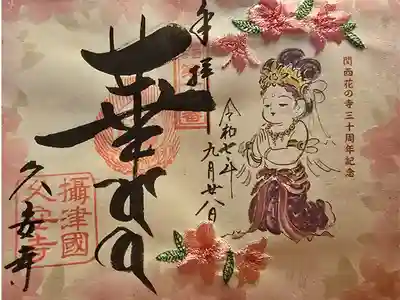 関西花の寺三十周年記念
奉拝
令和七年九月廿八日
華
久安寺
攝津國
久安寺